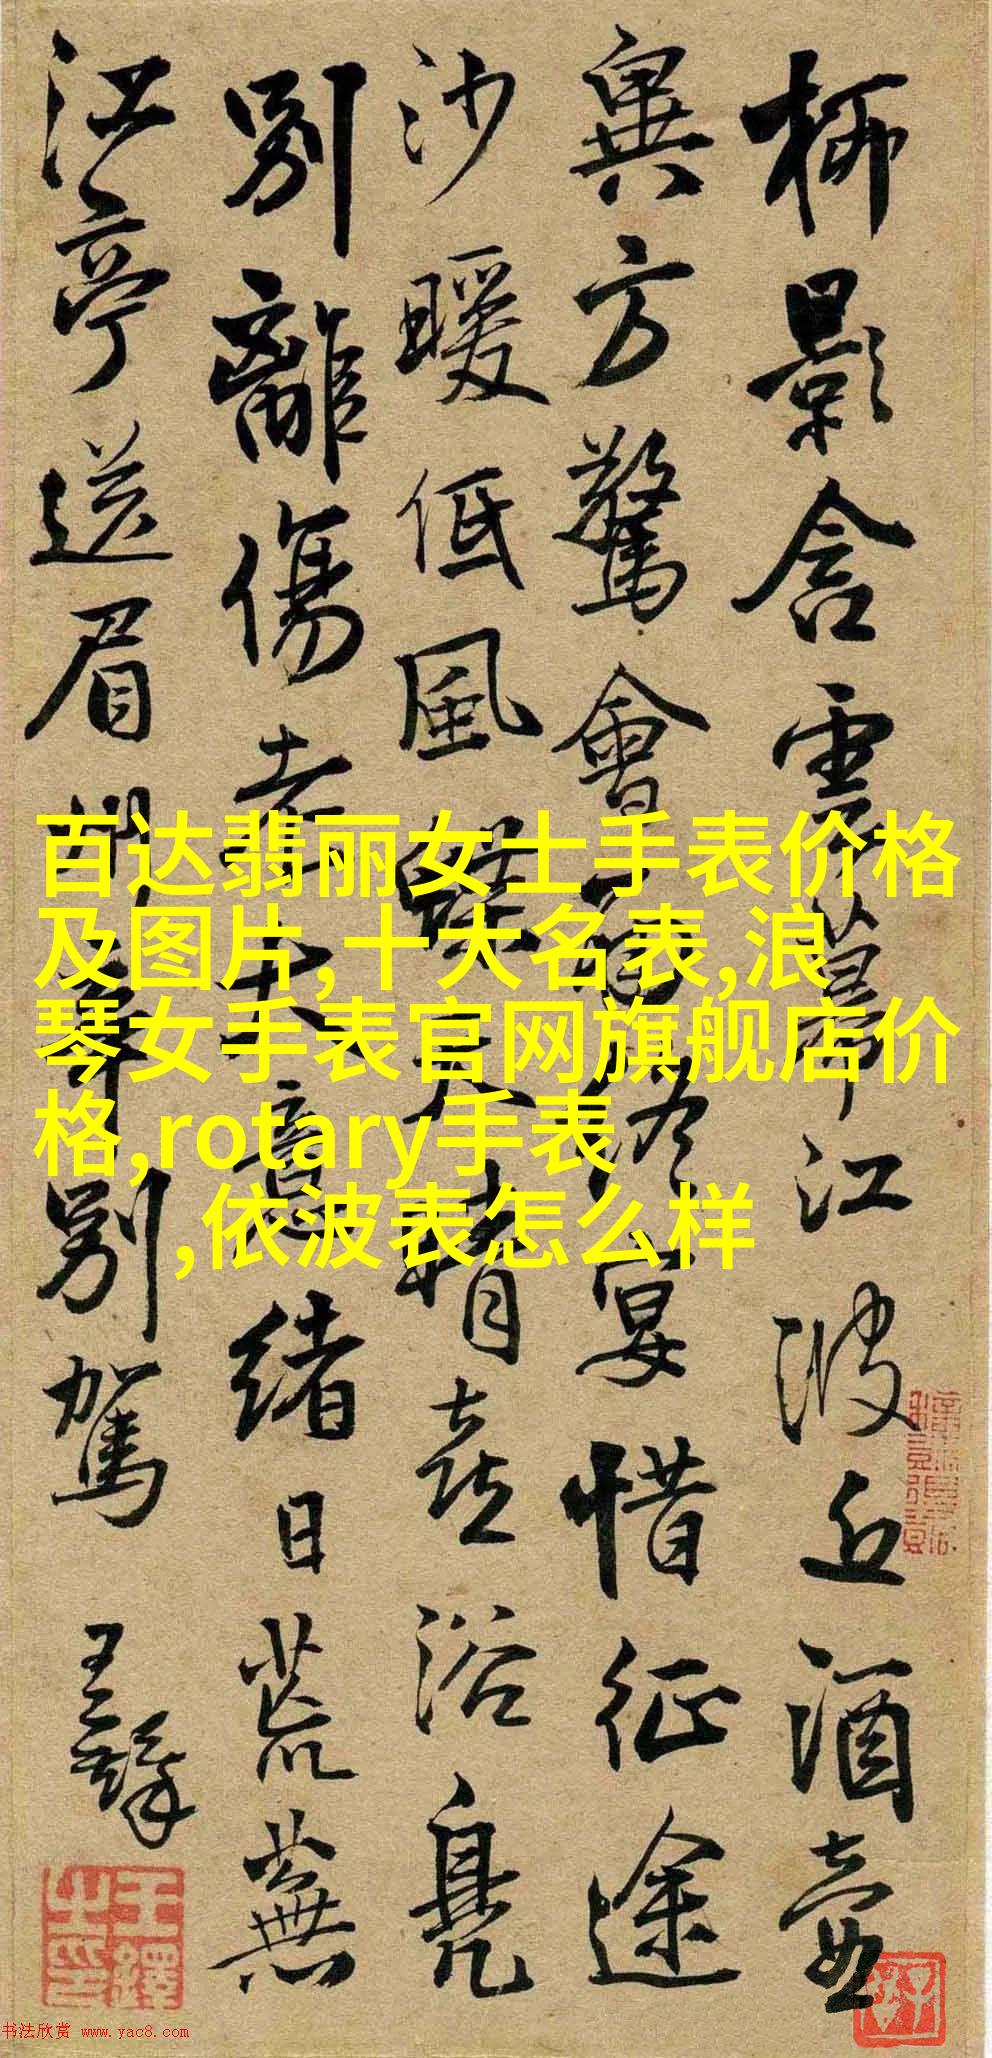 柳影含雲幕江波近酒壺
異方驚會面終宴惜征途
沙暖低風蝶天晴喜浴鳧
別離傷老大意緒日荒蕪
江亭送眉州辛別駕 王鐸
王鐸之印
百达翡丽女士手表价格
及图片,十大名表,浪
琴女手表官网旗舰店价
格,rotary手表
,依波表怎么样
书法欣赏 www.yac8.com